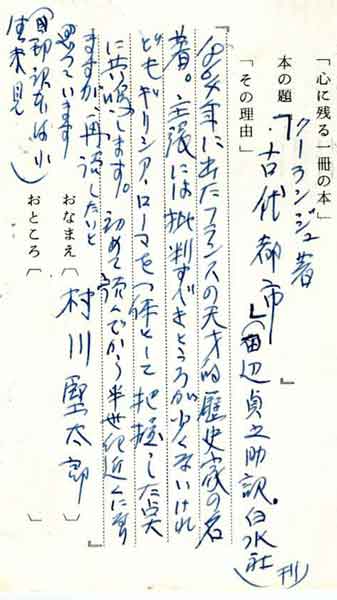 「心に残る一冊の本」
クーランジュ著
本の題『「古代都市」(田辺貞之助訳。白水社刊)』
「その理由」
1864年に出たフランスの天才的歴史家の名
著。主張には批判すべきところが少くないけれ
どもギリシア・ローマを一体として把握した点
に共鳴します。初めて読んでから半世紀近くになり
ますが、再読したいと
思っています
おなまえ〔村川堅太郎〕
おところ〔 〕
未見)